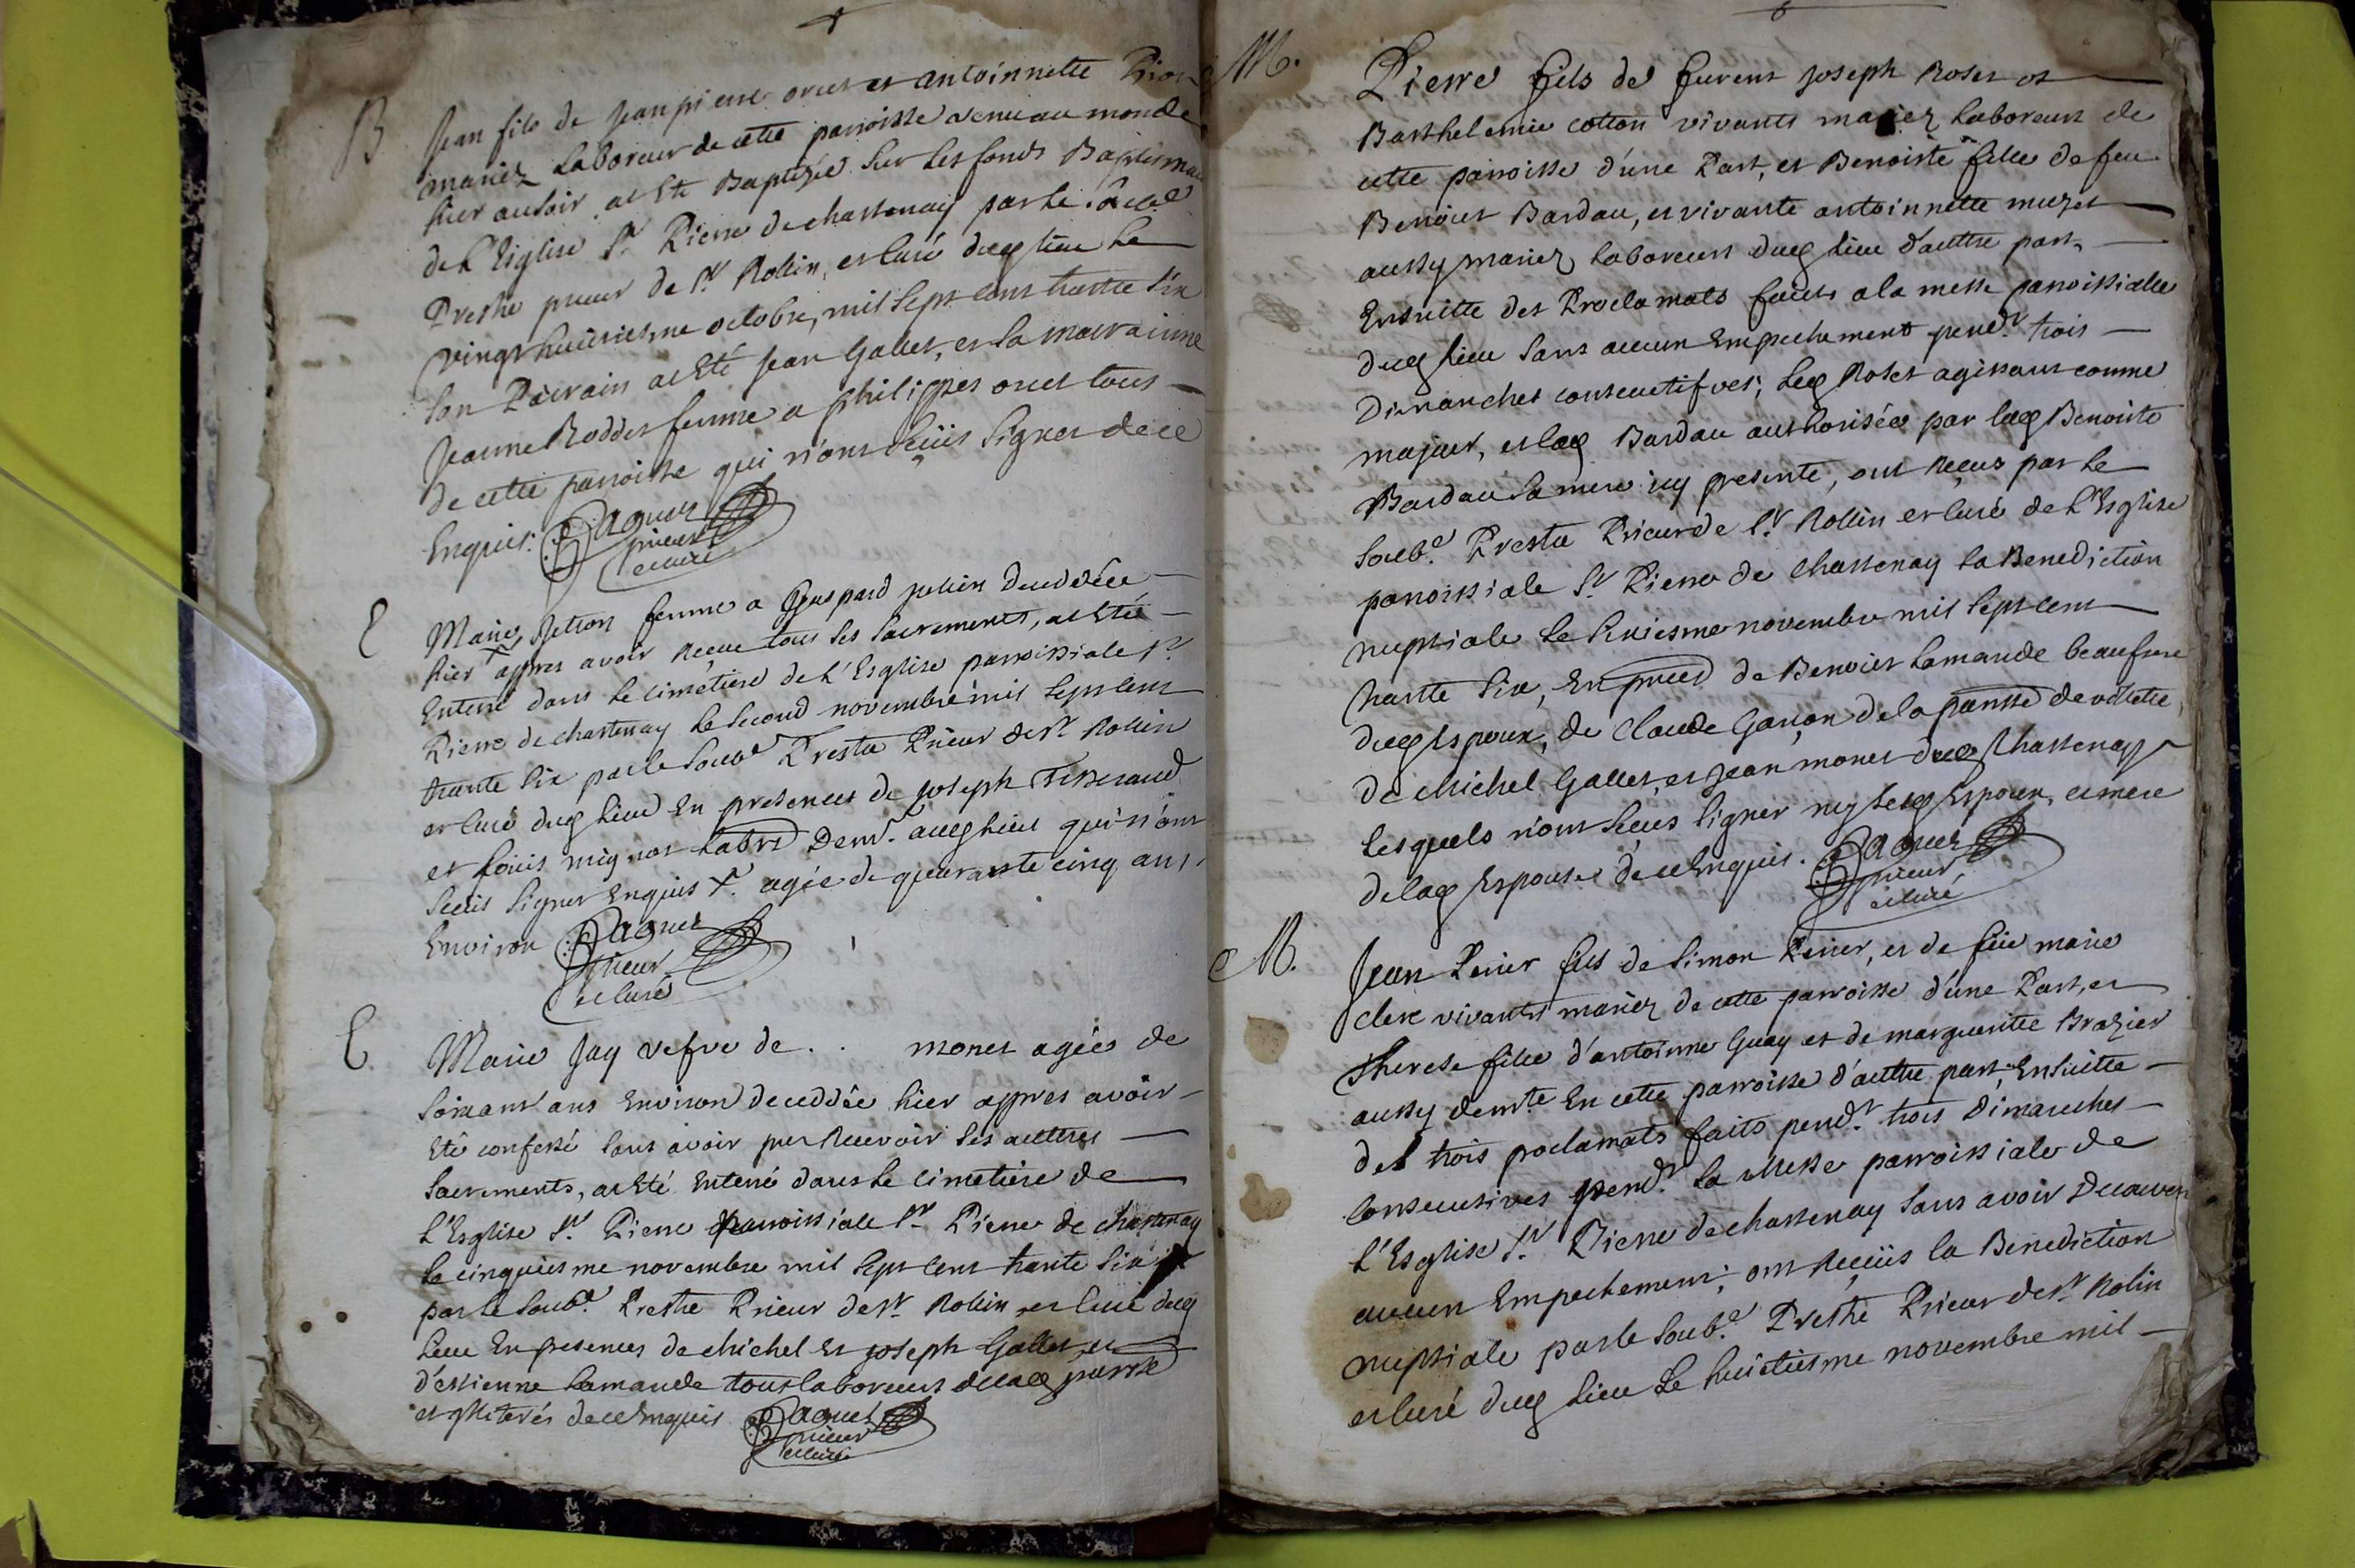 B
Jean fils de Jean pierre oriet et antoinnette
mariéz Laboreur de cette parroisse venu au monde
hier au soir at Eté Baptizée Sur Les fonds Baptismau
de L'Esglise St. Pierre de chastenay par le Soub.é
Prestre prieur de St. Rollin, et Curé dueg lieu Le
vingt huictiesme octobre, mil Sept Cens trente Six
Son Pairain at Eté Jean Gallet, et La marrainne
Jeanne Roddet femme a philippes oriet tous
de cette parroisse qui n'ont Sçüs Signer de ce
Enquis. Paquet
prieur
et curé
E
Marie Jetton femme a Guspard Julien deceddée
hier + appres avoir Reçue tous Les Sacrements, at Eté
Enterré dans Le Cimetiere de L'Esglise parroissiale St.
Pierre de chastenay Le Second novembre mil Sept Cens
trente Six par le Soub.é Prestre Prieur de St. Rollin
et Curé dueg Lieu En presences de Joseph Tisserand
et Loüis mignot Labrs Demt. aueg Lieu qui n'ont
Sceus Signer Enquis +. agée de quarante cinq ans
Environ Paquet
prieur
et Curé
E.
Marie Jay vefve de . . monet agée de
Soixant ans Environ deceddée hier appres avoir
Eté confessé Sans avoir peu Recevoir Les auttres
Sacrements, at Eté Enterré dans Le Cimetiere de
L'Esglise St. Pierre parroissiale St. Pierre de chastenay
Le cinquiesme novembre mil Sept Cens trente Six
par le Soub.é Prestre Prieur de St. Rollin et Curé dueg
Lieu En presences de Michel Et Joseph Gallet, et
d'estienne Lamaude tous Laboreurs delaeg parrsse
et illiterés de ce Enquis Paquet
prieur
et Curé
M.
Pierre fils de furent Joseph Roset et
Barthelemie cotton vivants mariéz Laboreurs de
cette parroisse d'une Part, et Benoiste fille de feu
Benoiet Bardau, et vivante antoinnette muzet
aussy mariéz Laboreurs dueg Lieu d'auttre part,
Ensuitte des Proclamats faicts a la messe parroissialle
dueg Lieu Sans aucun Empechement pendt. trois
Dimanches consecutifves; Leeg Roset agissant comme
majeur, et laeg Bardau authorisée par laeg Benoiste
Bardau Sa mere icy presente, ont Reçus par Le
Soub.é Prestre Prieur de St. Rollin et Curé de L'Esglise
parroissiale St. Pierre de chastenay La Benediction
nuptiale Le Sixiesme novembre mil Sept Cens
trante Six, En prced de Benoiet Lamaude beaufrere
dueg Espoux, de Claude Garçon dela parrsse de villette,
de Michel Gallet, et Jean monet dueg Chastenay
Lesquels n'ont Sceus Signer ny Leeg Espoux, et mere
delaeg Espouse de ce Enquis. Paquet
prieur
et Curé
M.
Jean Perier fils de Simon Perier, et de füe marie
clerc vivants mariéz de cette parroisse d'une Part, et
Therese fille d'antoinne Guay et de margueritte Brazier
aussy demte. En cette parroisse d'auttre part, Ensuitte
des trois proclamats faits pendt. trois Dimanches
Consecutives pendt. La Messe parroissiale de
L'Esglise St. Pierre de chastenay Sans avoir Decouver
aucun Empechement; ont Reçüs la Benediction
nuptiale par le Soub.é Prestre Prieur de St. Rolin
et Curé dueg Lieu Le huictiesme novembre mil